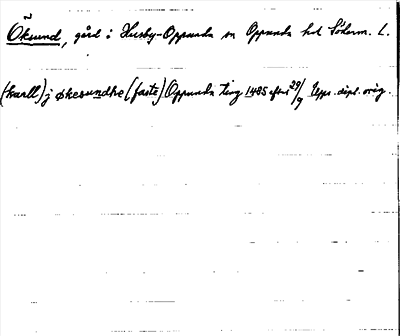 Öksund, gård i Husby-Oppunda sn Oppunda hd Söderm. L.
(karll) j økesundhe (faste) Oppunda ting 1485 efter 29/9 Upps. dipl. orig.